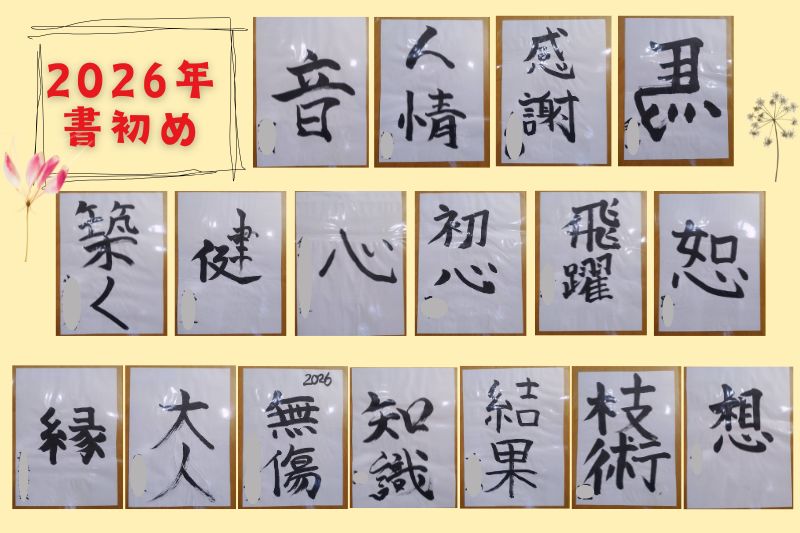 2026年
書初め
音
人情
感謝
築く
健
心
初心
飛躍
恕
縁
大人
2026
無傷
知識
結果
枝術
想